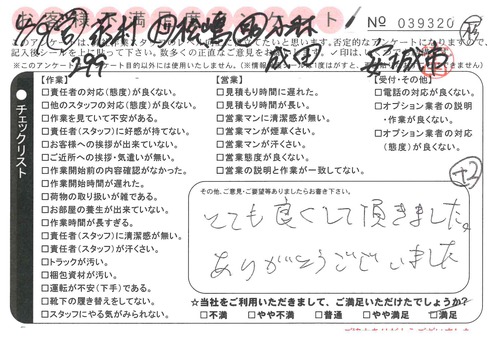 № 039320
このアンケートは、
【作業】
□責任者の対応(態度)が良くない。
□他のスタッフの対応(態度)が良くない。
□作業を見ていて不安がある。
□責任者(スタッフ)に好感が持てない。
□お客様への挨拶が出来ていない。
□ご近所への挨拶・気遣いが無い。
□作業開始前の内容確認がなかった。
□作業開始時間が遅れた。
□荷物の取り扱いが雑である。
□お部屋の養生が出来ていない。
□作業時間が長すぎる。
□責任者(スタッフ)に清潔感が無い。
□責任者(スタッフ)が汗くさい。
□トラックが汚い。
□梱包資材が汚い。
□運転が不安(下手)である。
□靴下の履き替えをしてない。
□スタッフにやる気がみられない。
【営業】
□見積もり時間に遅れた。
□見積もり時間が長い。
□営業マンに清潔感が無い。
□営業マンが煙草くさい。
□営業マンが汗くさい。
□営業態度が良くない。
□営業の説明と作業が一致してない。
【受付・その他】
□電話の対応が良くない。
□オプション業者の説明
・作業が良くない。
□オプション業者の対応
(態度)が良くない。
チェックリスト
その他、ご意見・ご要望等ありましたらお書き下さい。
とても良くして頂きました。
ありがとうございました
☆当社をご利用いただきまして、ご満足いただけたでしょうか？
□不満 □やや不満 □普通 □やや満足 □満足